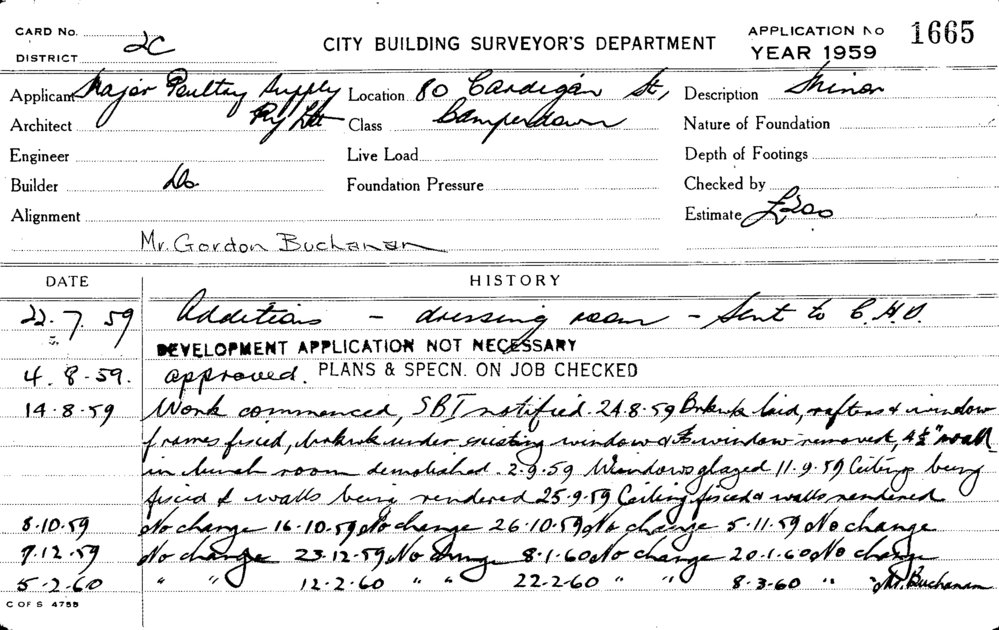 CARD No. 2C CITY BUILDING SURVEYOR'S DEPARTMENT APPLICATION No 1665
DISTRICT YEAR 1959
Applicant Major Poultry Supply Location 80 Cardigan St, Description Minor
Architect Pty Ltd Class Camperdown Nature of Foundation
Engineer Live Load Depth of Footings
Builder Do Foundation Pressure Checked by
Alignment Estimate £200
Mr. Gordon Buchanan
DATE HISTORY
22.7.59 Additions - dressing room - Sent to C.H.O.
DEVELOPMENT APPLICATION NOT NECESSARY
4.8.59. approved. PLANS & SPECN. ON JOB CHECKED
14.8.59 Work commenced, SBI notified. 24.8.59 Brkwk laid, rafters & window
frames fixed, brkwk under existing window & window removed, 4½" wall
in lunch room demolished. 2.9.59 Windows glazed 11.9.59 Ceilings being
fixed & walls being rendered 25.9.59 Ceiling fixed & walls rendered
8.10.59 No change 16.10.59 No change 26.10.59 No change 5.11.59 No change
7.12.59 No change 23.12.59 No change 8.1.60 No change 20.1.60 No change
5.2.60 " " 12.2.60 " " 22.2.60 " " 8.3.60 " " Mr. Buchanan
C OF S 4755